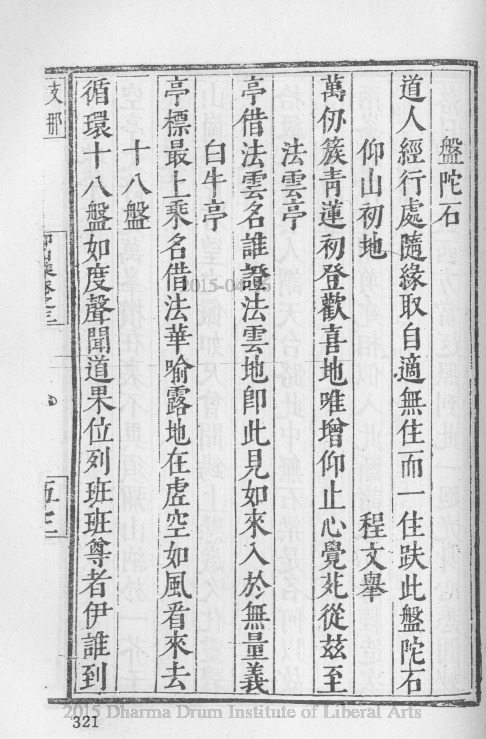 盤陀石
道人經行處隨緣取自適無住而一住趺此盤陀石
仰山初地 程文舉
萬仞簇靑蓮初登歡喜地唯增仰止心覺芤從茲至
法雲亭
亭借法雲名誰證法雲地卽此見如來入於無量義
白牛亭
亭標最上乘名借法華喻露地在虛空如風看來去
十八盤
循環十八盤如度聲聞道果位列班班尊者伊誰到
支那
仰山集卷之三
五三
2015-04-
2015 Dharma Drum Institute of Liberal Arts
321